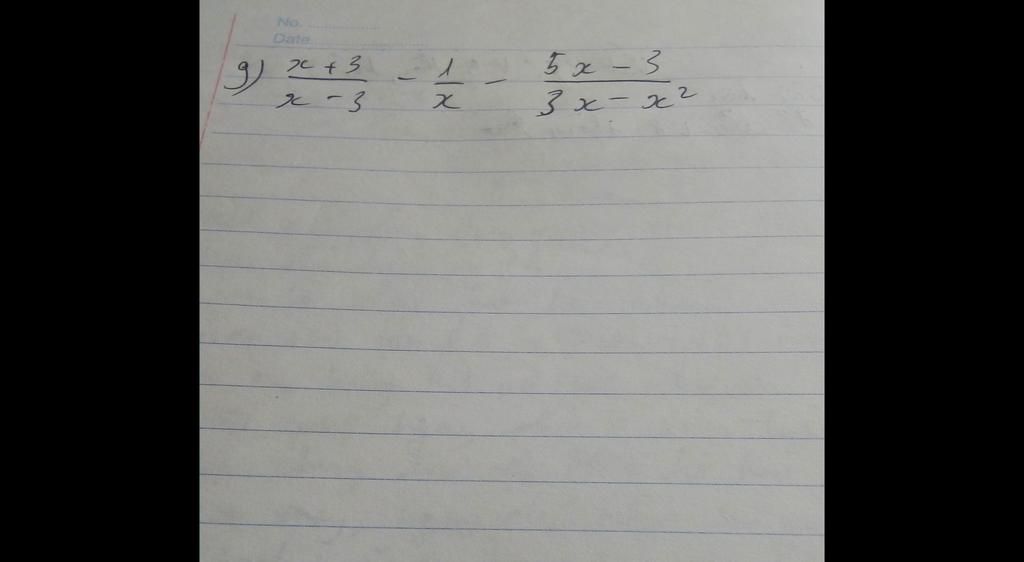 No. ..................
Date ..........................
g) \frac{x+3}{x-3} - \frac{1}{x} - \frac{5x-3}{3x-x^2}